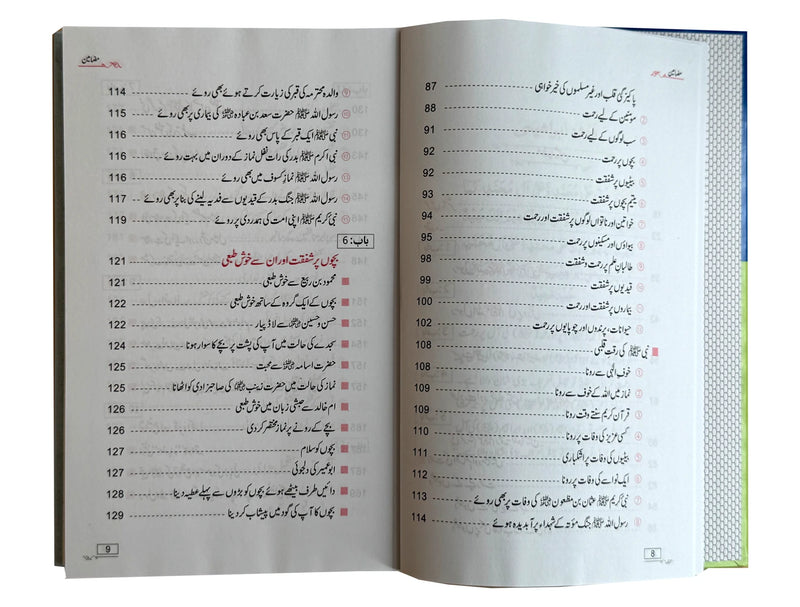 مضامین
پاکیزگئ قلب اور غیر مسلموں کی خیر خواہی 87
② مومنین کے لیے رحمت 88
③ سب لوگوں کے لیے رحمت 91
④ بچوں پر رحمت 92
⑤ بیٹیوں پر شفقت 92
⑥ یتیم بچوں پر شفقت 93
⑦ خواتین اور ناتواں لوگوں پر شفقت اور رحمت 94
⑧ بیواؤں اور مسکینوں پر رحمت 95
⑨ طالبان علم پر رحمت و شفقت 98
⑩ قیدیوں پر شفقت 99
⑪ بیماروں پر شفقت اور رحمت 100
⑫ حیوانات، پرندوں اور چوپایوں پر رحمت 102
■ نبی ﷺ کی رقت قلبی 108
① خوف الٰہی سے رونا 108
② نماز میں اللہ کے خوف سے رونا 109
③ قرآن کریم سنتے وقت رونا 109
④ کسی عزیز کی وفات پر رونا 110
⑤ بیٹیوں کی وفات پر اشکباری 111
⑥ ایک نواسے کی وفات پر رونا 112
⑦ نبی کریم ﷺ عثمان بن مظعون رضی اللہ عنہ کی وفات پر بھی روئے 113
⑧ رسول اللہ ﷺ جنگ موتہ کے شہداء پر آبدیدہ ہوئے 114
8
مضامین
⑨ والدہ محترمہ کی قبر کی زیارت کرتے ہوئے بھی روئے 114
⑩ رسول اللہ ﷺ حضرت سعد بن عبادہ رضی اللہ عنہ کی بیماری پر بھی روئے 115
⑪ نبی ﷺ ایک قبر کے پاس بھی روئے 116
⑫ نبی اکرم ﷺ بدر کی رات نفل نماز کے دوران میں بہت روئے 116
⑬ رسول اللہ ﷺ نماز کسوف میں بھی روئے 116
⑭ رسول اللہ ﷺ جنگ بدر کے قیدیوں سے فدیہ لینے کی بنا پر بھی روئے 117
⑮ نبی کریم ﷺ اپنی امت کی ہمدردی پر روئے 119
باب: 6
بچوں پر شفقت اور ان سے خوش طبعی 121
■ محمود بن ربیع سے خوش طبعی 121
■ بچوں کے ایک گروہ کے ساتھ خوش طبعی 122
■ حسن و حسین رضی اللہ عنہما سے لاڈ پیار 122
■ سجدے کی حالت میں آپ کی پشت پر بچے کا سوار ہونا 124
■ حضرت اسامہ رضی اللہ عنہ سے محبت 125
■ نماز کی حالت میں حضرت زینب رضی اللہ عنہا کی صاحبزادی کو اٹھانا 125
■ ام خالد سے حبشی زبان میں خوش طبعی 126
■ بچے کے رونے پر نماز مختصر کر دی 126
■ بچوں کو سلام 127
■ ابو عمیر کی دلجوئی 127
■ دائیں طرف بیٹھے ہوئے بچوں کو بڑوں سے پہلے عطیہ دینا 128
■ بچوں کا آپ کی گود میں پیشاب کر دینا 129
9